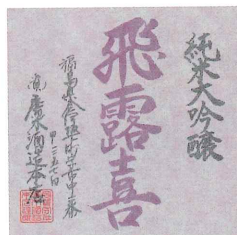 純米大吟醸
飛露喜
福島県会津坂下町字市中二番
甲三五七四
廣木酒造本店